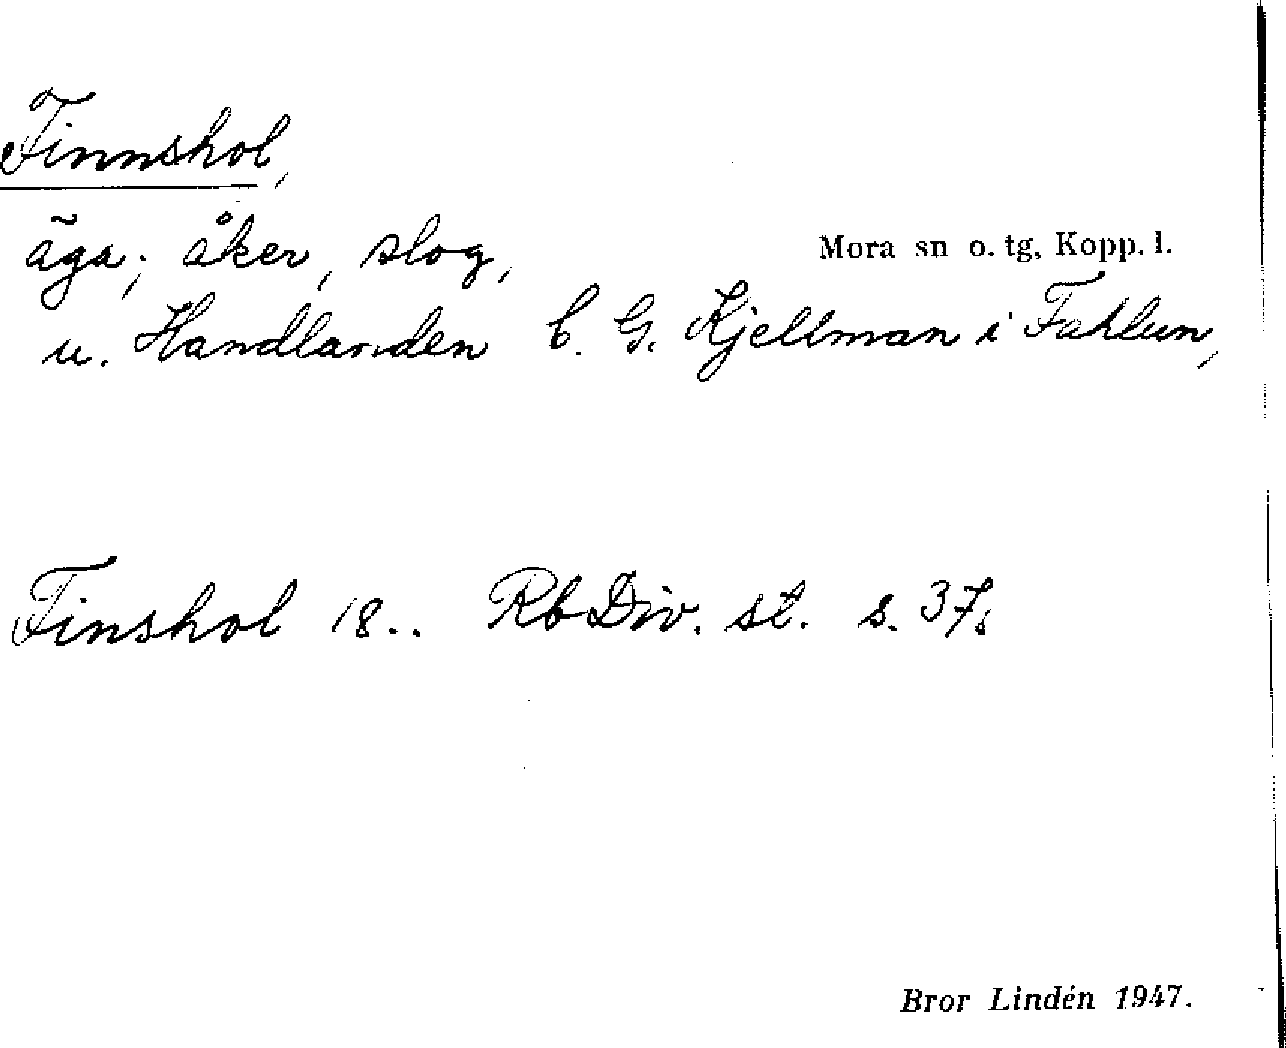 Finnshol,
äga; åker, slog,
Mora sn o. tg, Kopp. l.
u. Handlanden C. G. Kjellman i Fahlun,
Finshol 18.. Rb Div. st. s. 37;
Bror Lindén 1947.